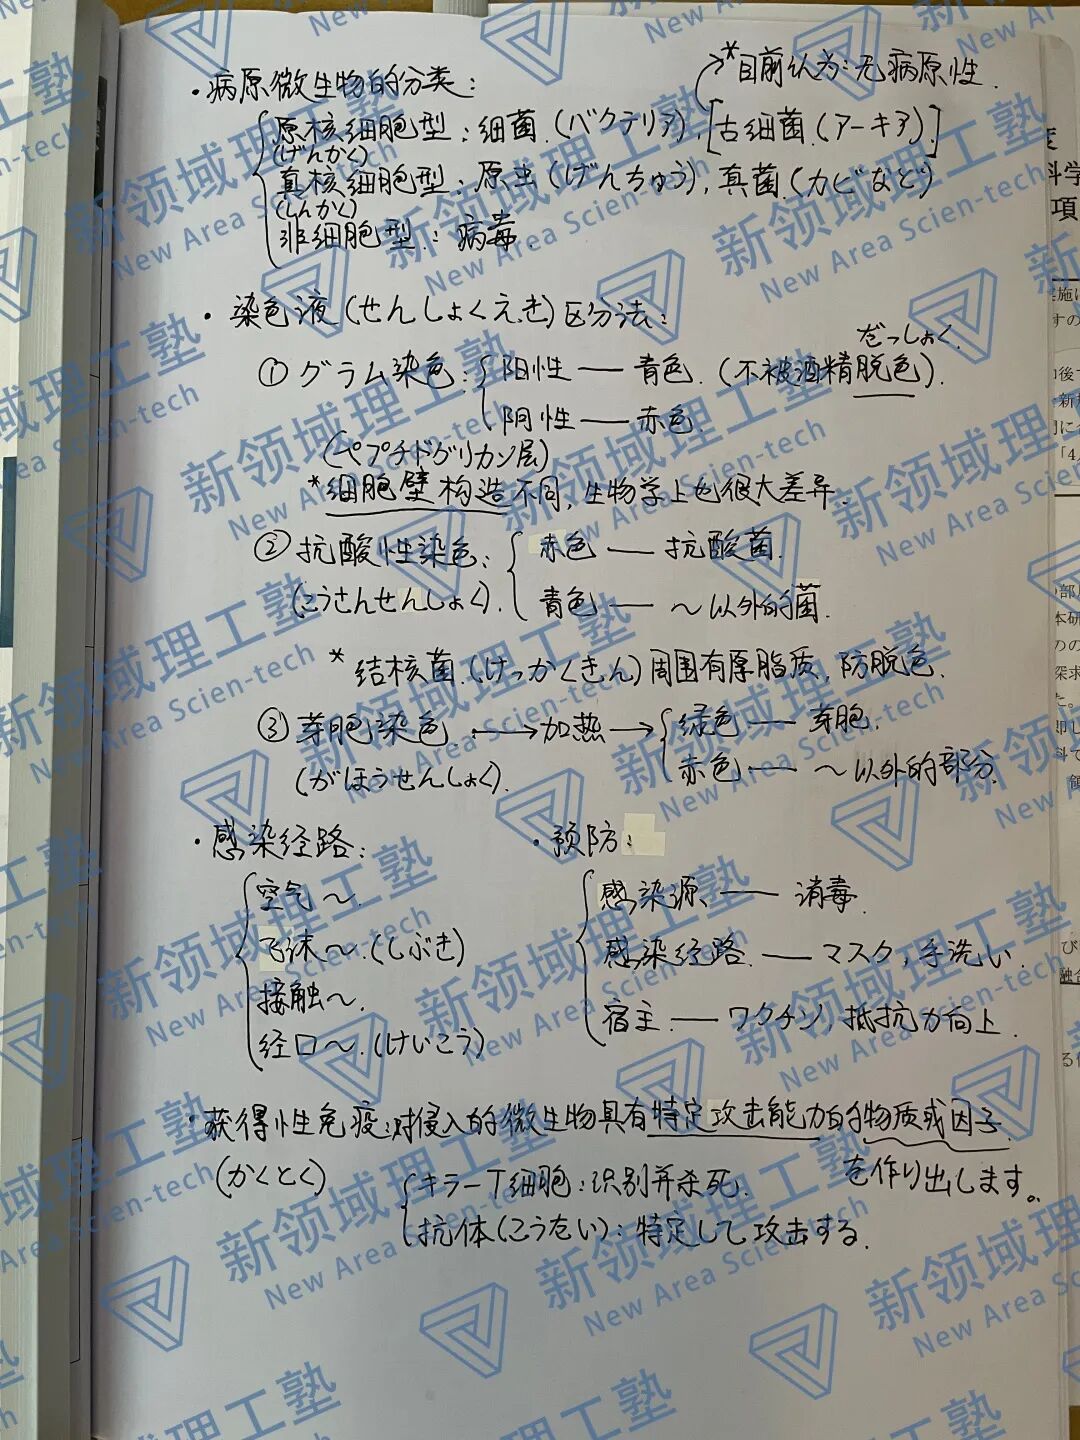 *目前认为:无病原性.
·病原微生物的分类:
原核细胞型:细菌.(バクテリア)[古细菌.(アーキア)]
(げんかく)
真核细胞型:原虫(げんちゅう),真菌.(カビなど)
(しんかく)
非细胞型:病毒.
·染色液(せんしょくえき)区分法:
だっしょく.
①グラム染色:阳性——青色.(不被酒精脱色).
阴性——赤色.
(ペプチドグリカン层)
*细胞壁构造不同,生物学上也很大差异.
②抗酸性染色:赤色——抗酸菌.
(こうさんせんしょく).青色——~以外的菌.
*结核菌.(けっかくきん)周围有厚脂质,防脱色.
③芽胞染色→加热→绿色——芽胞.
(がほうせんしょく).赤色——~以外的部分.
·感染经路:
空气~.
飞沫~.(しぶき)
接触~.
经口~.(けいこう)
·预防:
感染源——消毒.
感染经路.——マスク,手洗い.
宿主.——ワクチン,抵抗力向上.
·获得性免疫:对侵入的微生物具有特定攻击能力的物质或因子
(かくとく)
を作り出します。
キラーT细胞:识别并杀死.
抗体(こうたい):特定して攻击する.
新领域理工塾
New Area Scien-tech